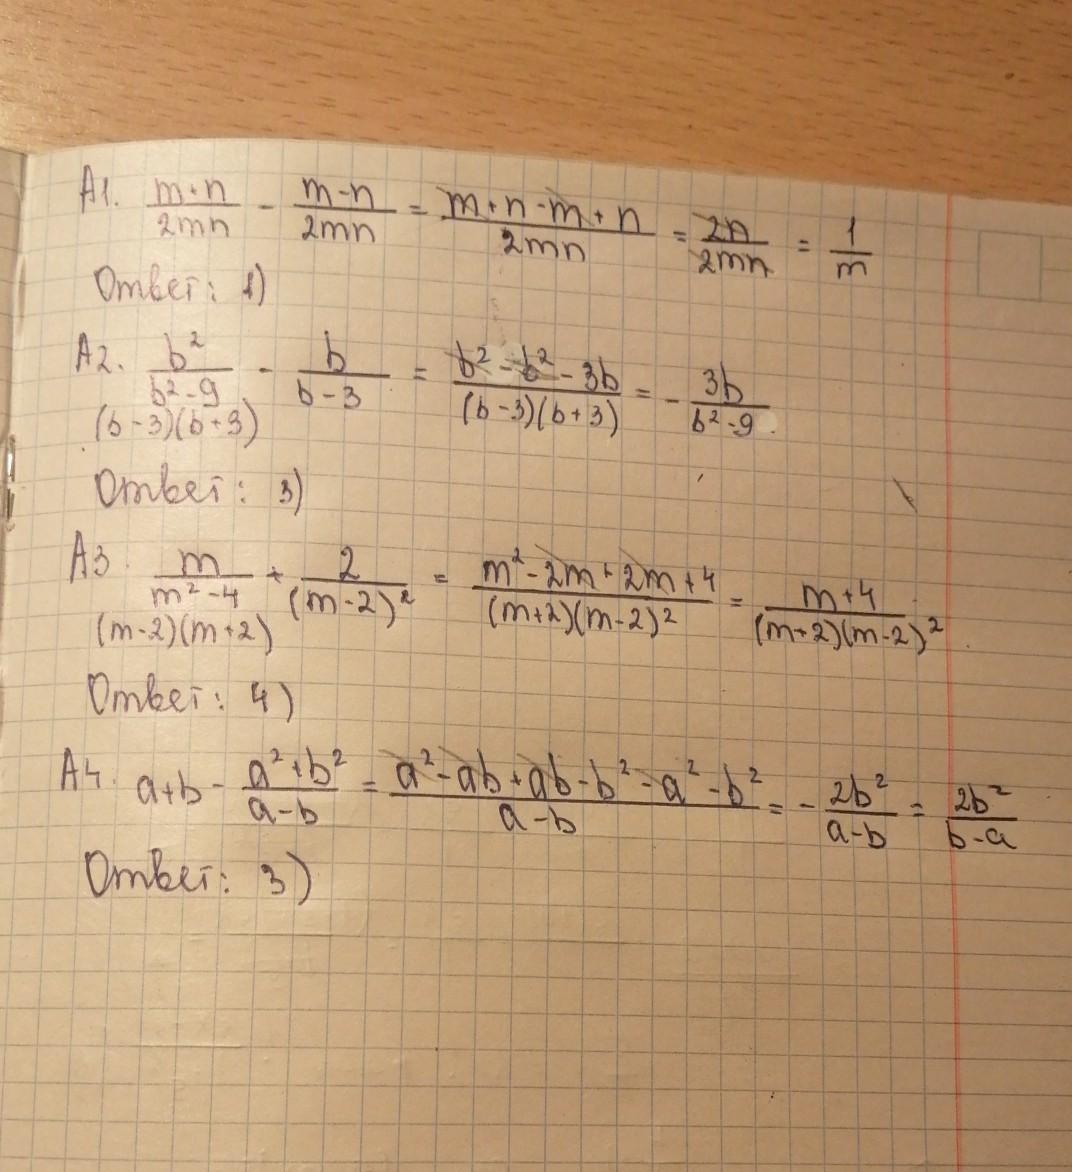 А1. (m+n)/(2mn) - (m-n)/(2mn) = (m+n-m+n)/(2mn) = 2n/(2mn) = 1/m
Ответ: 1)
А2. b²/(b²-9) - b/(b-3) = (b²-b²-3b)/((b-3)(b+3)) = - 3b/(b²-9)
(b-3)(b+3)
Ответ: 3)
А3. m/(m²-4) + 2/(m-2)² = (m²-2m+2m+4)/((m+2)(m-2)²) = (m+4)/((m+2)(m-2)²)
(m-2)(m+2)
Ответ: 4)
А4. a+b - (a²+b²)/(a-b) = (a²-ab+ab-b²-a²-b²)/(a-b) = - 2b²/(a-b) = 2b²/(b-a)
Ответ: 3)